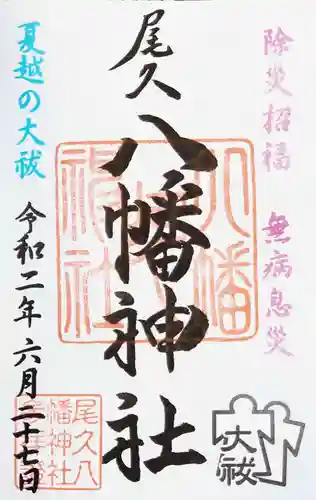 除災招福　無病息災
尾久
八幡神社
夏越の大祓
令和二年六月二十七日
八幡
神社
尾久八
幡神社
大祓